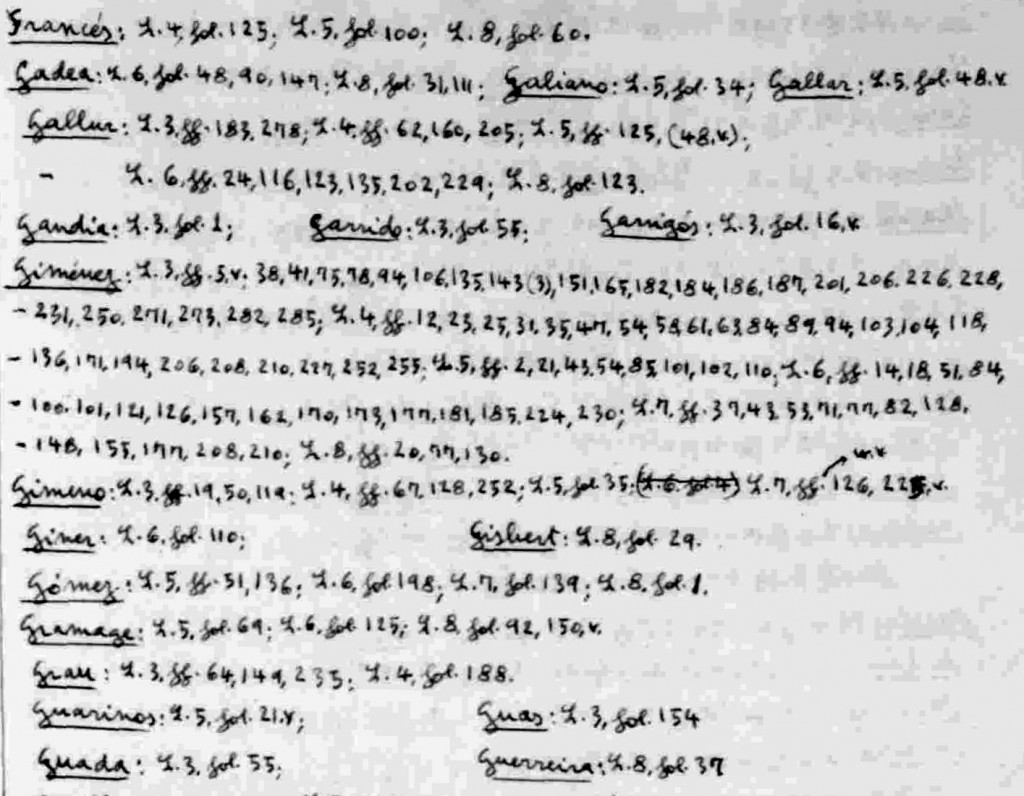 Francés: L.4, fol. 125; L.5, fol. 100; L.8, fol. 60.
Gadea: L.6, fol. 48, 90, 147; L.8, fol. 31, 111; Galiano: L.5, fol. 34; Gallar: L.5, fol. 48.v
Gallur: L.3, ff. 183, 278; L.4, ff. 62, 160, 205; L.5, ff. 125, (48.v);
- L.6, ff. 24, 116, 123, 135, 202, 229; L.8, fol. 123.
Gandia: L.3, fol. 1; Garrido: L.3, fol. 55; Garrigós: L.3, fol. 16,v
Giménez: L.3, ff. 5,v. 38, 41, 75, 78, 94, 106, 135, 143 (3), 151, 165, 182, 184, 186, 187, 201, 206, 226, 228,
- 231, 250, 271, 273, 282, 285; L.4, ff. 12, 23, 25, 31, 35, 47, 54, 58, 61, 63, 84, 89, 94, 103, 104, 118,
- 136, 171, 194, 206, 208, 210, 227, 252, 255; L.5, ff. 2, 21, 43, 54, 85, 101, 102, 110; L.6, ff. 14, 18, 51, 84,
- 100, 101, 121, 126, 157, 162, 170, 173, 177, 181, 185, 224, 230; L.7, ff. 37, 43, 53, 71, 77, 82, 128,
- 148, 155, 177, 208, 210; L.8, ff. 20, 77, 130.
Gimeno: L.3, ff. 19, 50, 119; L.4, ff. 67, 128, 252; L.5, fol 35; (L.6. fol 4) L.7, ff. 126, v.
Giner: L.6, fol. 110; Gisbert: L.8, fol. 29.
Gómez: L.5, ff. 51, 136; L.6, fol 198; L.7, fol. 139; L.8, fol. 1.
Gramage: L.5, fol. 69; L.6, fol 125; L.8, fol. 92, 150,v.
Grau: L.3, ff. 64, 149, 235; L.4, fol. 188.
Guarinos: L.5, fol. 21.v; Guas: L.3, fol. 154
Guada: L.3, fol. 55; Guerreira: L.8, fol. 37